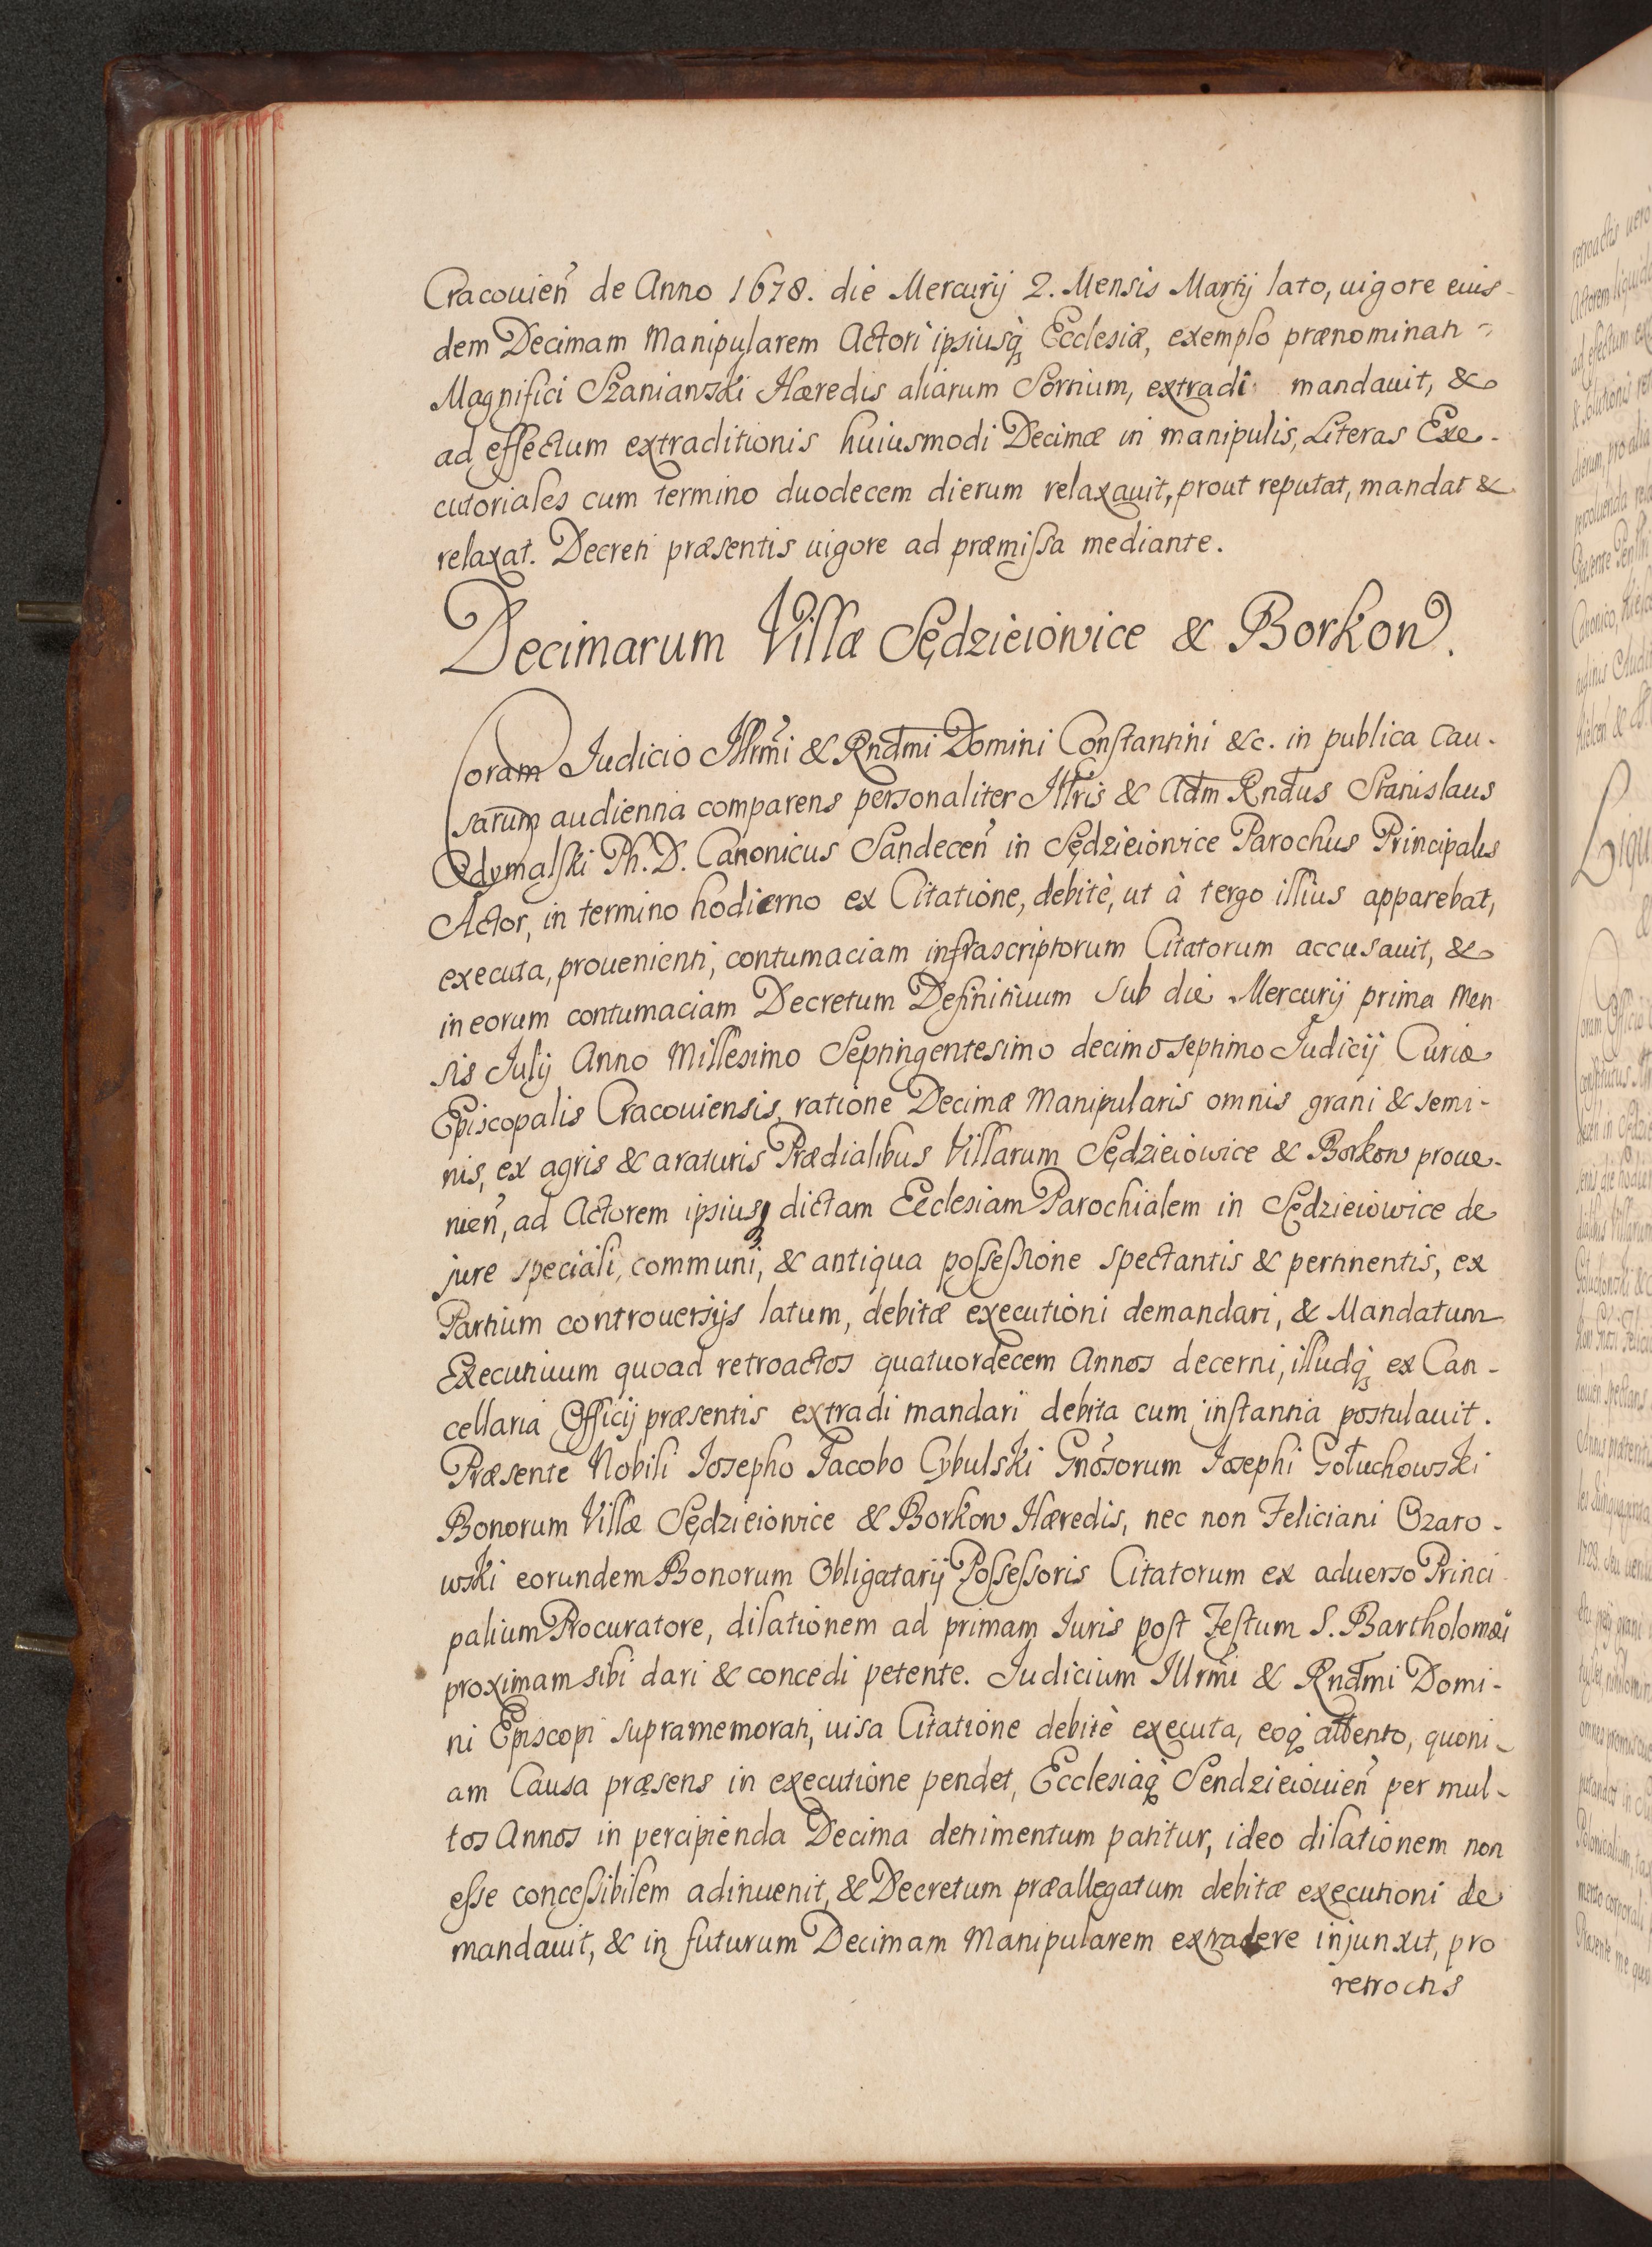 Cracouien̄ de Anno 1678. die Mercurij 2. Mensis Martij lato, uigore eius-
dem Decimam Manipularem Actori ipsiusq̨ Ecclesiæ, exemplo prænominati
Magnifici Szaniawski Hæredis aliarum Sortium, extradi mandauit, &
ad effectum extraditionis huiusmodi Decimæ in manipulis, Literas Exe-
cutoriales cum termino duodecem dierum relaxauit, prout reputat, mandat &
relaxat. Decreti præsentis uigore ad præmissa mediante.
Decimarum Villæ Sędzieiowice & Borkow.
Coram Judicio Illrm̄i & Rnd̄mi Domini Constantini &c. in publica Cau-
sarum audientia comparens personaliter Illr̄is & Ad̄m Rnd̄us Stanislaus
Odymalski Ph. D. Canonicus Sandecen̄ in Sędzieiowice Parochus Principales
Actor, in termino hodierno ex Citatione, debitè, ut à tergo illius apparebat,
executa, prouenienti, contumaciam infrascriptorum Citatorum accusauit, &
in eorum contumaciam Decretum Definitiuum sub die Mercurij prima Men
sis Julij Anno Millesimo Septingentesimo decimo septimo Judicij Curiæ
Episcopalis Cracouiensis, ratione Decimæ Manipularis omnis grani & semi-
nis, ex agris & araturis Prædialibus Villarum Sędzieiowice & Borkow proue-
nien̄, ad Actorem ipsiusq̨ dictam Ecclesiam Parochialem in Sędzieiowice de
jure speciali, communi, & antiqua possessione spectantis & pertinentis, ex
Partium controuersijs latum, debitæ executioni demandari, & Mandatum
Executiuum quoad retroactos quatuordecem Annos decerni, illudq̨ ex Can-
cellaria Officij præsentis extradi mandari debita cum instantia postulauit.
Præsente Nobili Josepho Jacobo Cybulski Gn̄osorum Josephi Gołuchowski
Bonorum Villæ Sędzieiowice & Borkow Hæredis, nec non Feliciani Ozaro-
wski eorundem Bonorum Obligatarij Possessoris Citatorum ex aduerso Princi
palium Procuratore, dilationem ad primam Juris post Festum S. Bartholomæi
proximam sibi dari & concedi petente. Judicium Illrm̄i & Rnd̄mi Domi-
ni Episcopi supramemorati, uisa Citatione debitè executa, eoq̨ attento, quoni-
am Causa præsens in executione pendet, Ecclesiaq̨ Sendzieiouien̄ per mul-
tos Annos in percipienda Decima detrimentum patitur, ideo dilationem non
esse concessibilem adinuenit, & Decretum præallegatum debitæ executioni de
mandauit, & in futurum Decimam Manipularem extradere injunxit, pro
retroctis